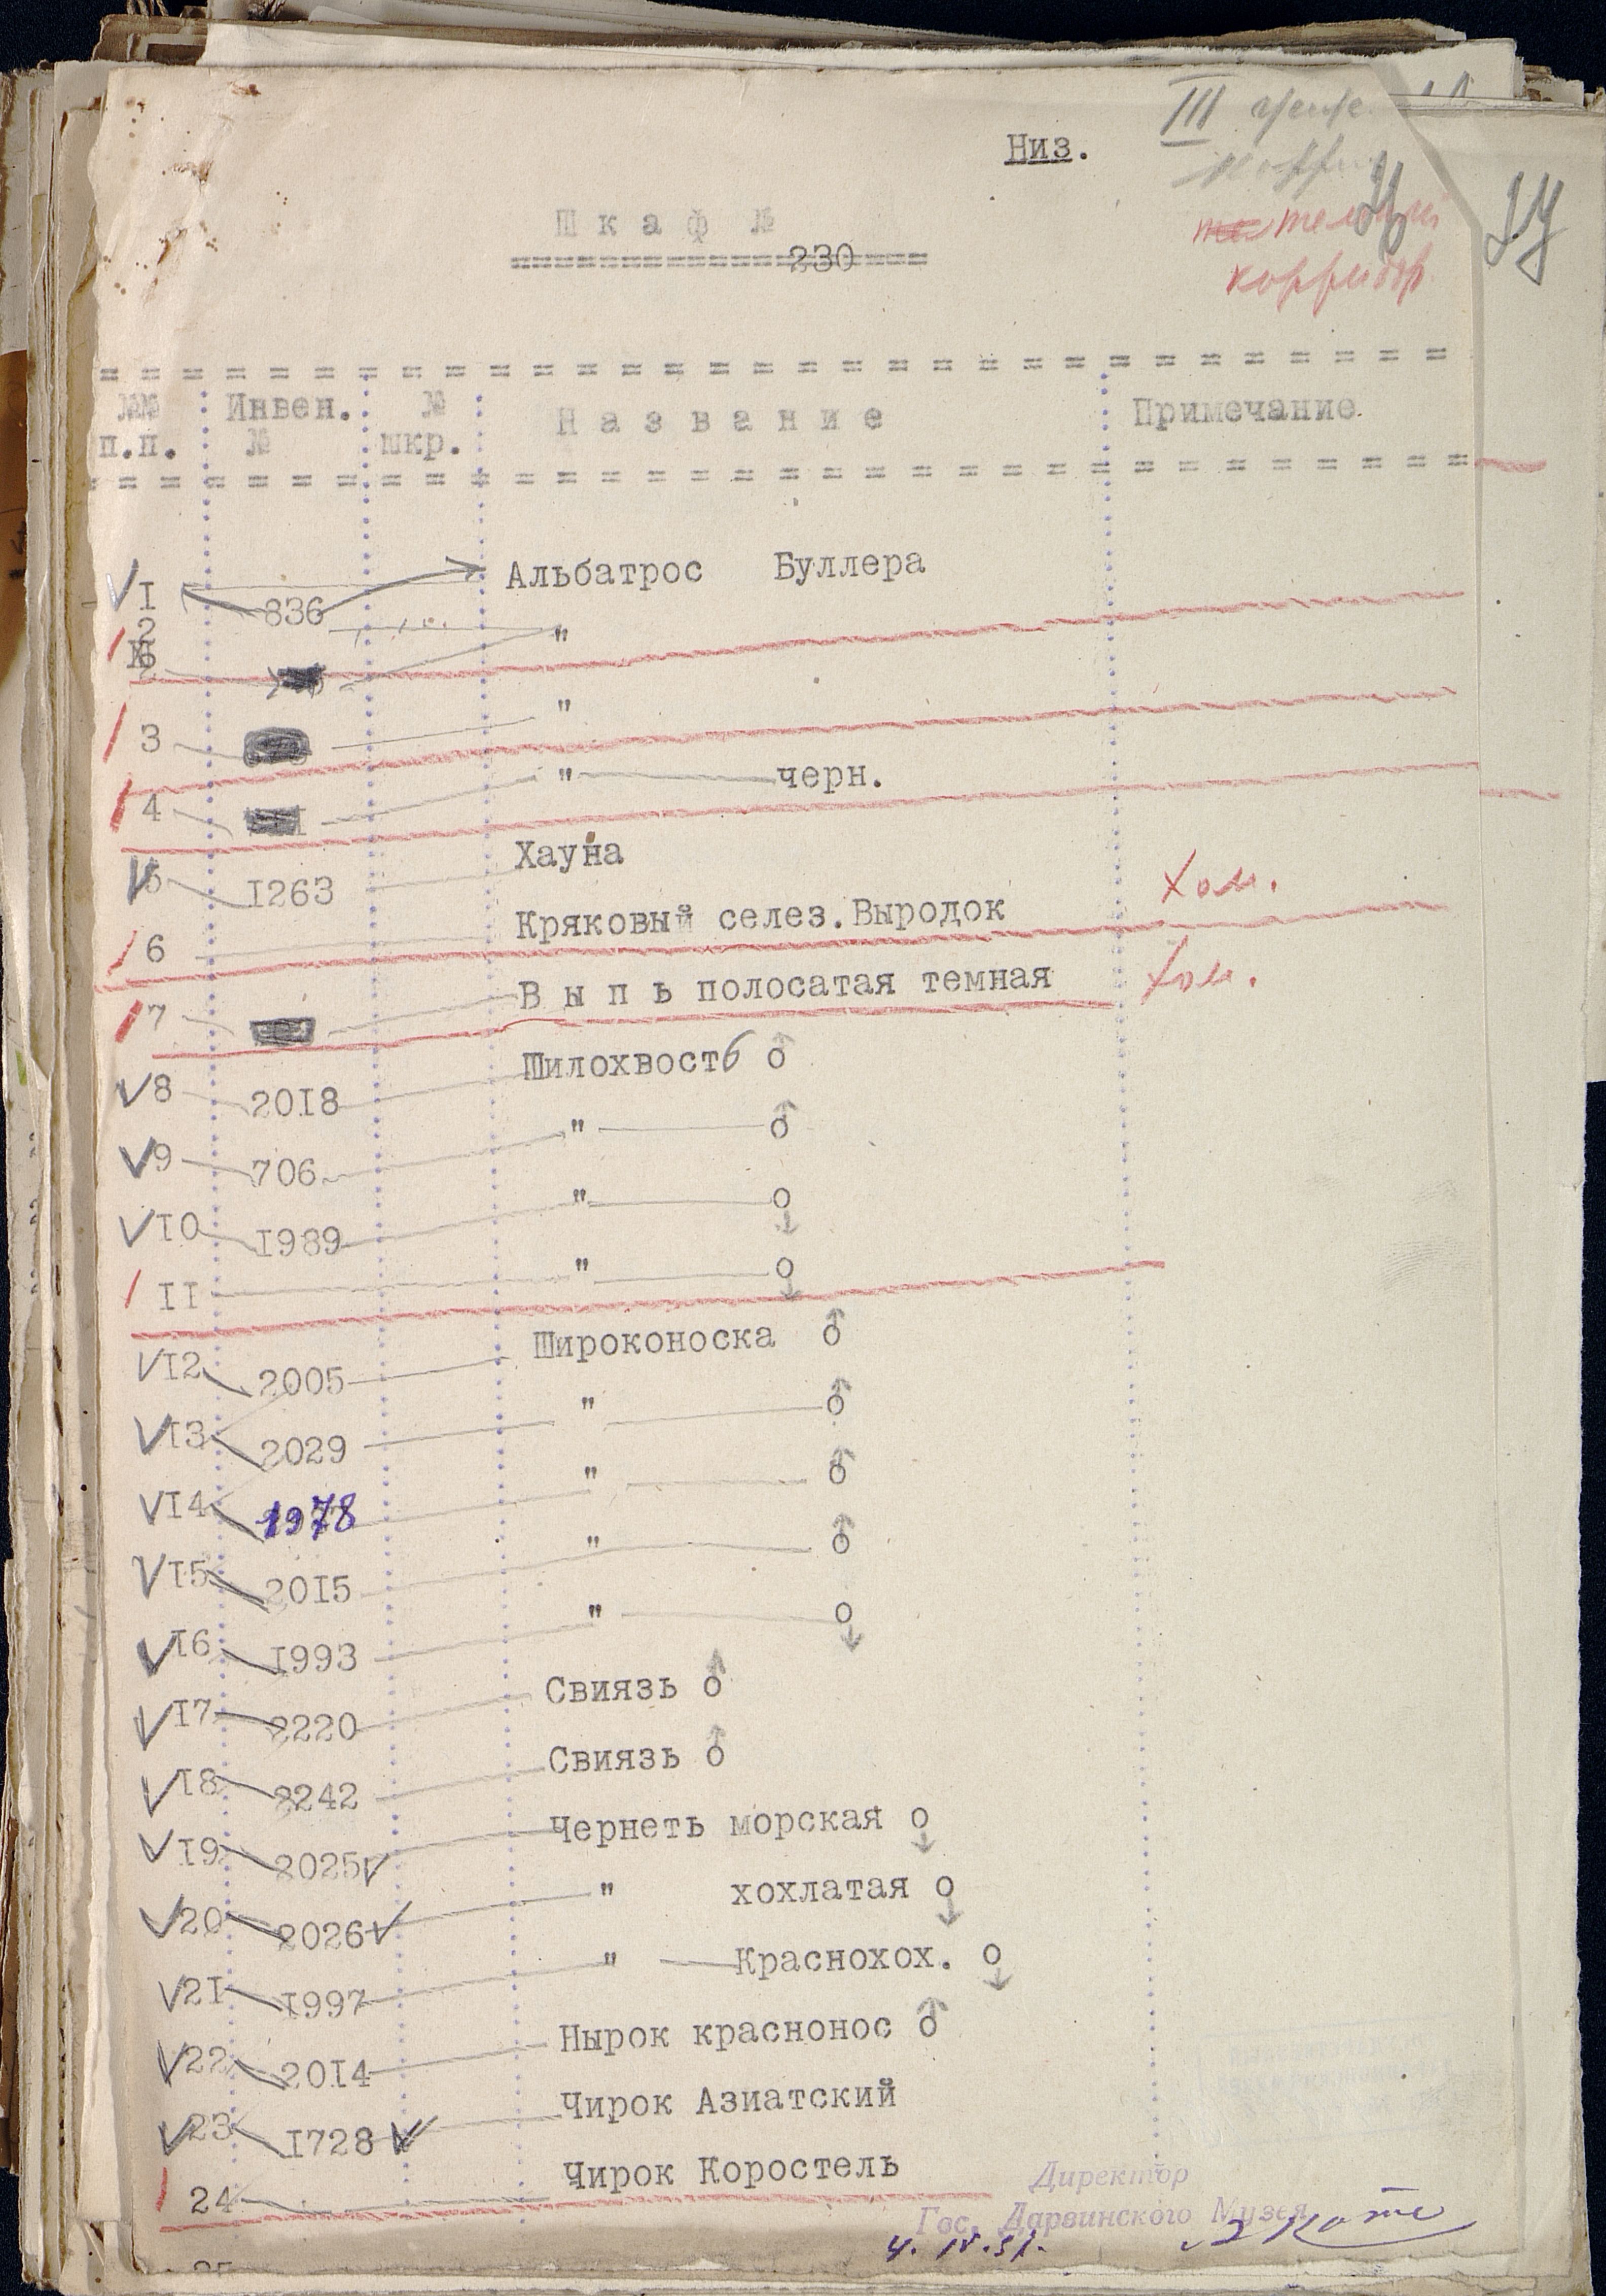 Низ.
III
Шкаф №
230
корридор.
№№ Инвен. № Название Примечание
п.п. № шкр.
I 836 Альбатрос Буллера
2 "
3 "
4 " черн.
5 I263 Хауна
6 Кряковый селез.Выродок Хол.
7 Выпь полосатая темная Хол.
8 20I8 Шилохвость ♂
9 706 " ♂
I0 I989 " ♀
II " ♀
I2 2005 Широконоска ♂
I3 2029 " ♂
I4 1978 " ♂
I5 20I5 " ♂
I6 I993 " ♀
I7 2220 Свиязь ♂
I8 2242 Свиязь ♂
I9 2025 Чернеть морская ♀
20 2026 " хохлатая ♀
2I I997 " Краснохох. ♀
22 20I4 Нырок краснонос ♂
23 I728 Чирок Азиатский
24 Чирок Коростель
Директор
Гос. Дарвинского Музея